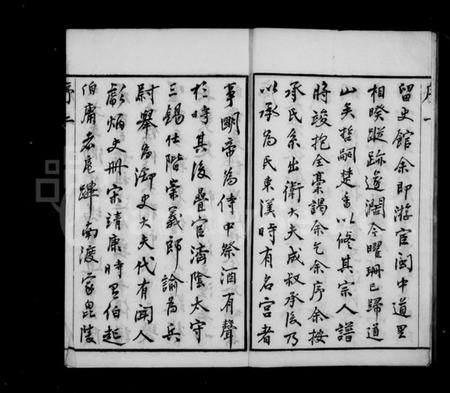 留史館余即游宦閩中道里
相暌蹤跡遂濶今曜珊已歸道
山矣哲嗣楚香以修其宗人譜
將竣抱全稾謁余乞余序余按
承氏系出衛大夫成叔承後乃
以承為氏東漢時有名宮者
事明帝為侍中祭酒有聲
於時其後疊官濟陰太守
三錫仕階崇義郎諭為兵
尉舉為御史大夫代有聞人
彪炳史冊宋靖康時曰伯起
伯庸者扈蹕南渡家毘陵
序一
序二